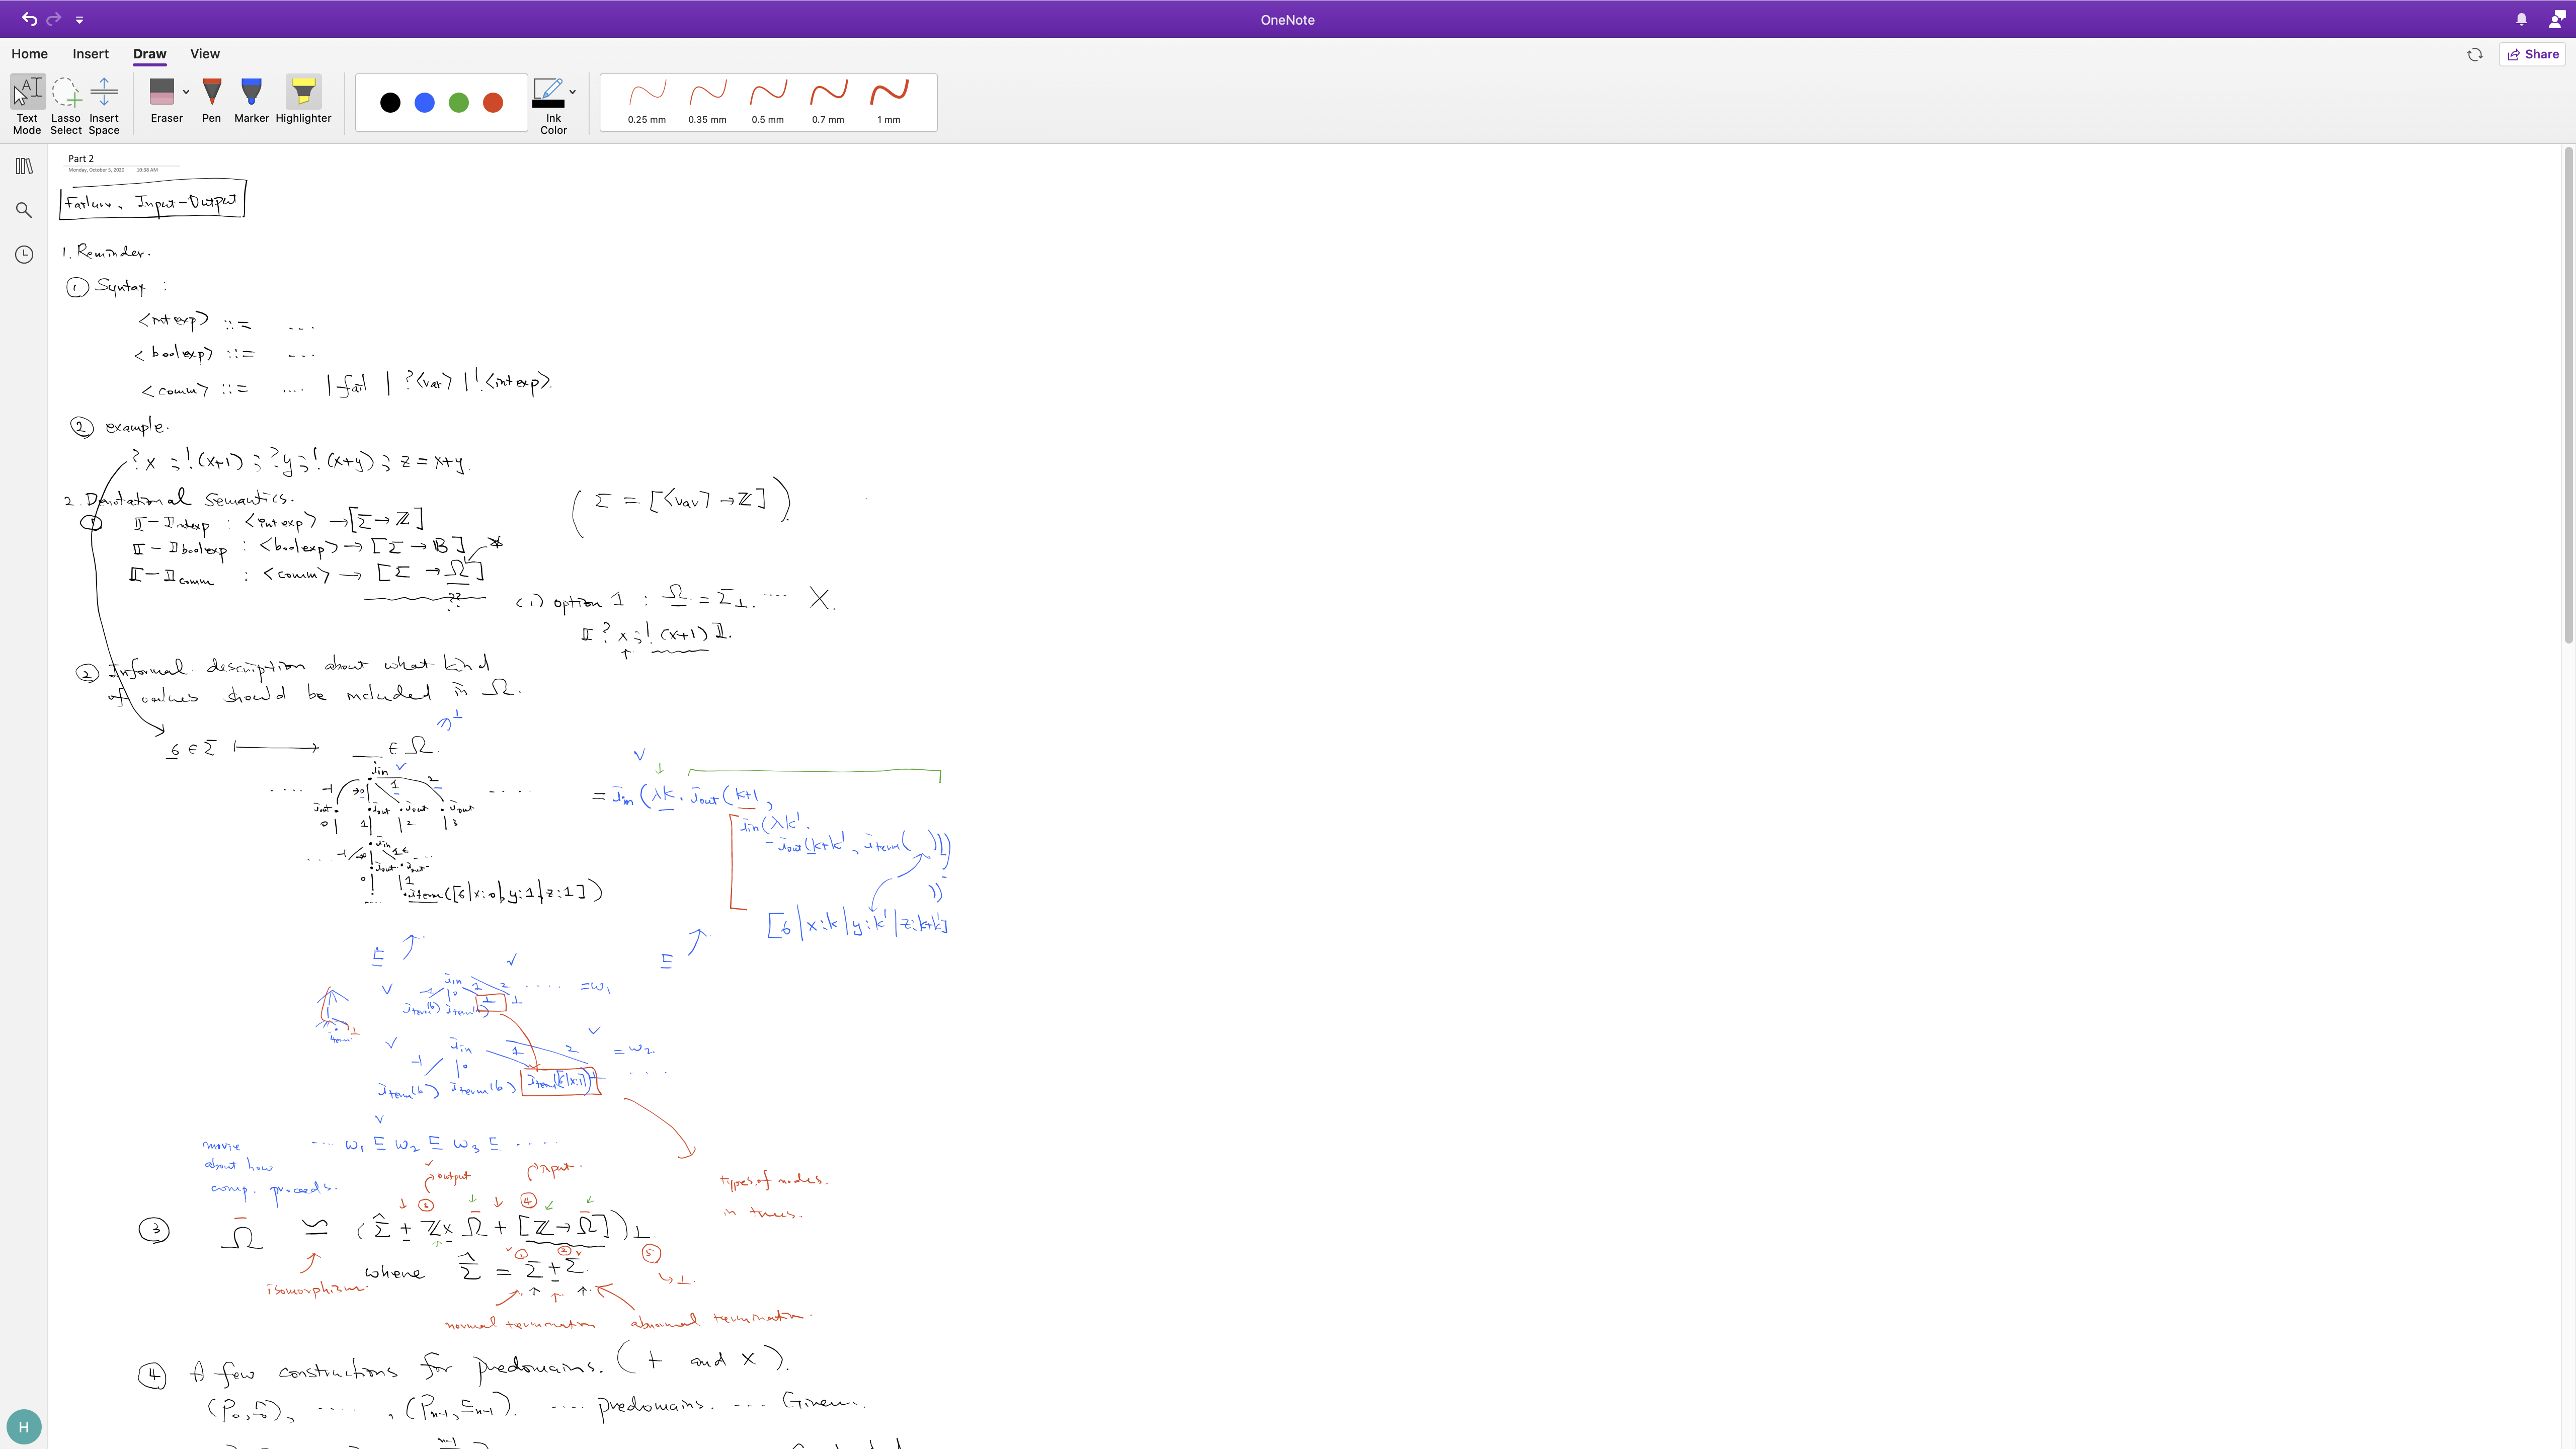 OneNote
Home Insert Draw View
Share
Text Mode
Lasso Select
Insert Space
Eraser
Pen
Marker
Highlighter
Ink Color
0.25 mm 0.35 mm 0.5 mm 0.7 mm 1 mm
Part 2
Monday, October 5, 2020 10:38 AM
Failure, Input-Output
1. Reminder.
① Syntax :
<intexp> ::= ....
<boolexp> ::= ....
<comm> ::= .... | fail | ?<var> | !<intexp>.
② example.
?x ; !(x+1) ; ?y ; !(x+y) ; z = x+y.
2. Denotational Semantics.
(Σ = [<var> → ℤ])
① ⟦-⟧intexp : <intexp> → [Σ → ℤ]
⟦-⟧boolexp : <boolexp> → [Σ → 𝔹]
⟦-⟧comm : <comm> → [Σ → Ω]
??
(i) option 1 : Ω = Σ⊥ .... X.
⟦?x ; !(x+1)⟧.
② Informal description about what kind
of values should be included in Ω.
⊥
σ ∈ Σ ⟼ ___ ∈ Ω.
ιin
-1 0 1 2
ιout ιout ιout ιout
0 1 2 3
ιin
-1 0 1
ιout ιout
0 1
ιterm([σ|x:0|y:1|z:1])
= ιin(λk. ιout(k+1,
ιin(λk'.
ιout(k+k', ιterm( ))))
))
[σ|x:k|y:k'|z:k+k']
⊑ ⊑
ιin
-1 0 1 2 .... = ω1
ιterm(σ) ιterm( ) ⊥ ⊥
ιterm ⊥
ιin
-1 0 1 2 = ω2.
ιterm(σ) ιterm(σ) ιterm([σ|x:1]) ....
.... ω1 ⊑ ω2 ⊑ ω3 ⊑ ....
movie
about how
comp. proceeds.
output input.
types of nodes.
in trees.
③ ④
③ Ω ≃ (Σ̂ + ℤ × Ω + [ℤ → Ω])⊥
① ② ⑤
where Σ̂ = Σ + Σ.
↳ ⊥.
isomorphism.
normal termination abnormal termination.
④ A few constructions for predomains. (+ and ×).
(P0, ⊑0), ...., (Pn-1, ⊑n-1). .... predomains. .... Given.
n-1
H